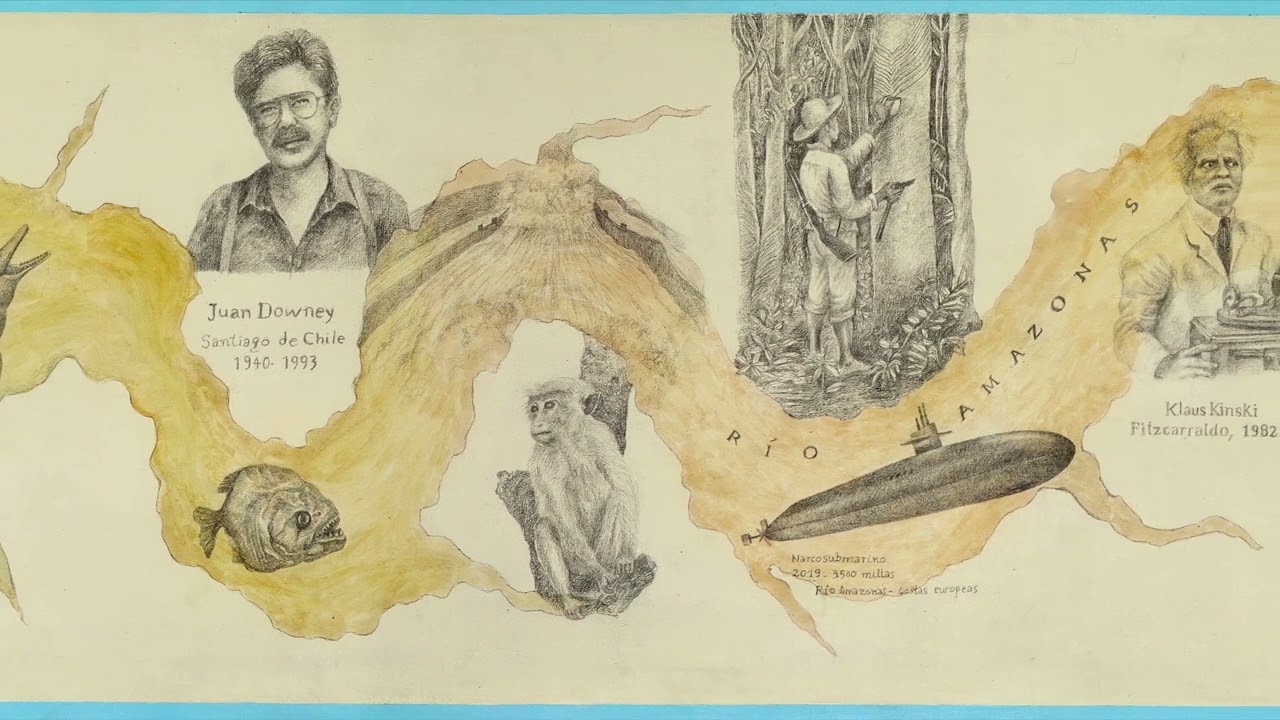 Juan Downey
Santiago de Chile
1940-1993
RÍO AMAZONAS
Narcosubmarino
2019-3500 millas
Río Amazonas- costas europeas
Klaus Kinski
Fitzcarraldo, 1982